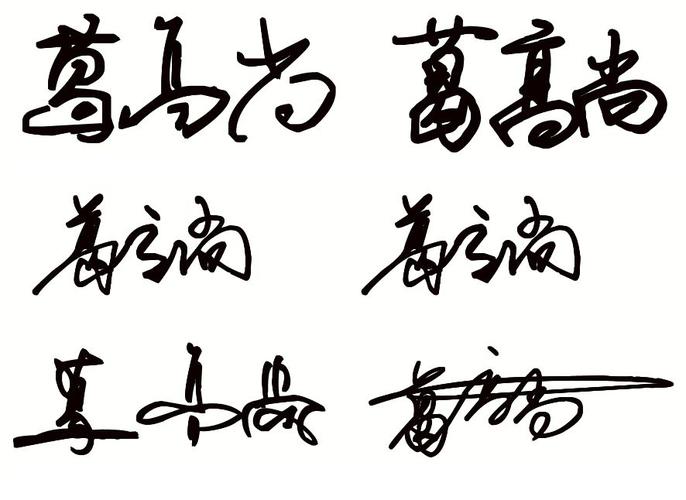 葛高尚 葛高尚
葛高尚 葛高尚
葛高尚 葛高尚